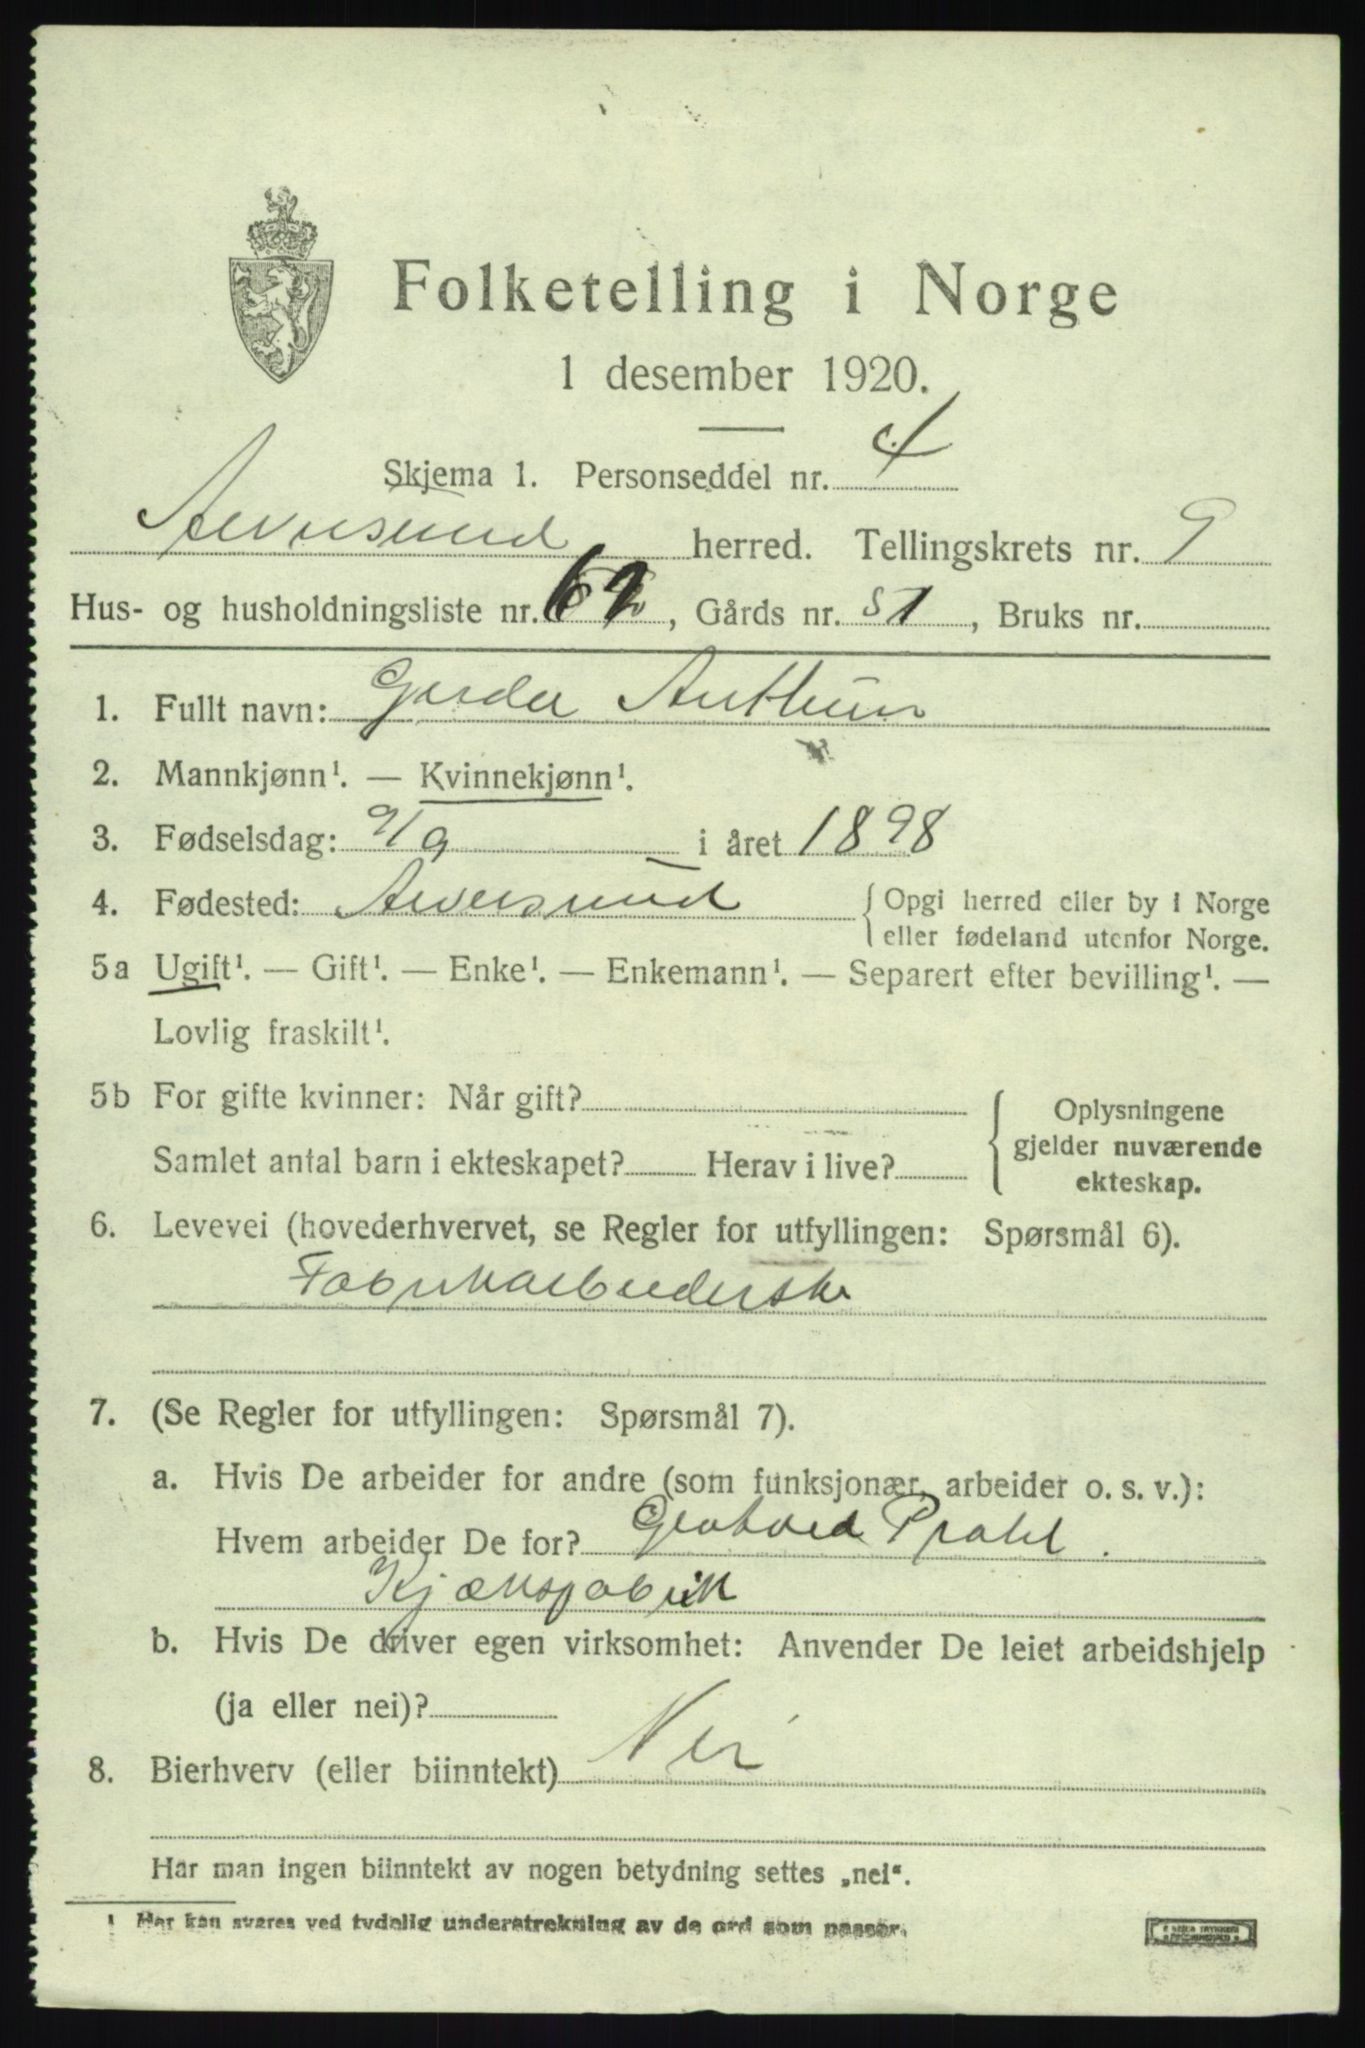 Folketelling i Norge
1 desember 1920.
Skjema 1. Personseddel nr. 4
Alversund herred. Tellingskrets nr. 9
Hus- og husholdningsliste nr. 62, Gårds nr. 51, Bruks nr.
1. Fullt navn: Gerda Anthun
2. Mannkjønn¹. — Kvinnekjønn¹.
3. Fødselsdag: 9/9 i året 1898
4. Fødested: Alversund { Opgi herred eller by i Norge
eller fødeland utenfor Norge.
5a Ugift¹. — Gift¹. — Enke¹. — Enkemann¹. — Separert efter bevilling¹. —
Lovlig fraskilt¹.
5b For gifte kvinner: Når gift?
Samlet antal barn i ekteskapet? Herav i live?
Oplysningene
gjelder nuværende
ekteskap.
6. Levevei (hovederhvervet, se Regler for utfyllingen: Spørsmål 6).
Fabrikarbeiderske
7. (Se Regler for utfyllingen: Spørsmål 7).
a. Hvis De arbeider for andre (som funksjonær, arbeider o. s. v.):
Hvem arbeider De for? Prahl
Kjæksfabrik
b. Hvis De driver egen virksomhet: Anvender De leiet arbeidshjelp
(ja eller nei)?
8. Bierhverv (eller biinntekt) Nei
Har man ingen biinntekt av nogen betydning settes „nei“.
1 Her kan svares ved tydelig understrekning av de ord som passer.